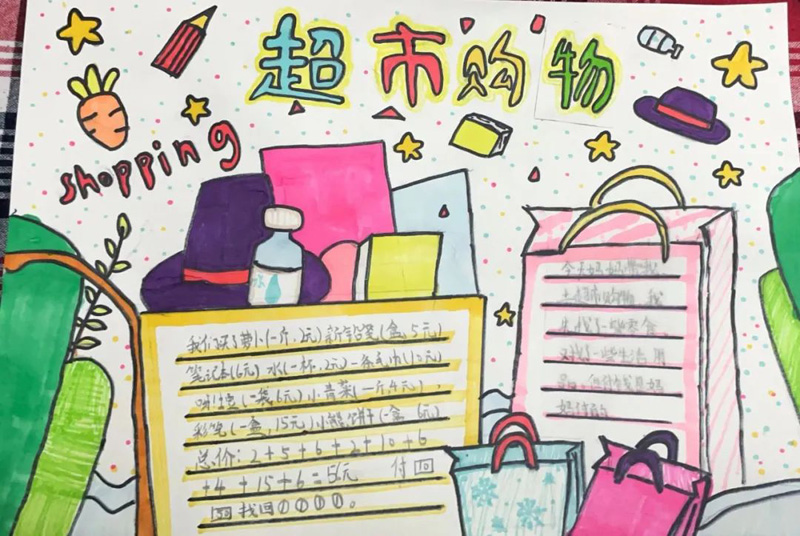 超市购物
shopping
我们买了萝卜(一斤,2元)新铅笔(一盒,5元)
笔记本(6元)水(一杯,2元)一条毛巾(10元)
(一袋,6元)小青菜(一斤,4元),
彩笔(一盒,15元)小熊饼干(一盒 6元)
总价:2+5+6+2+10+6
+4+15+6=5元 付回
回找回①①①①。
今天妈妈带我
去超市购物,我
先找了一些零食,
又找了一些生活用
品,
妈